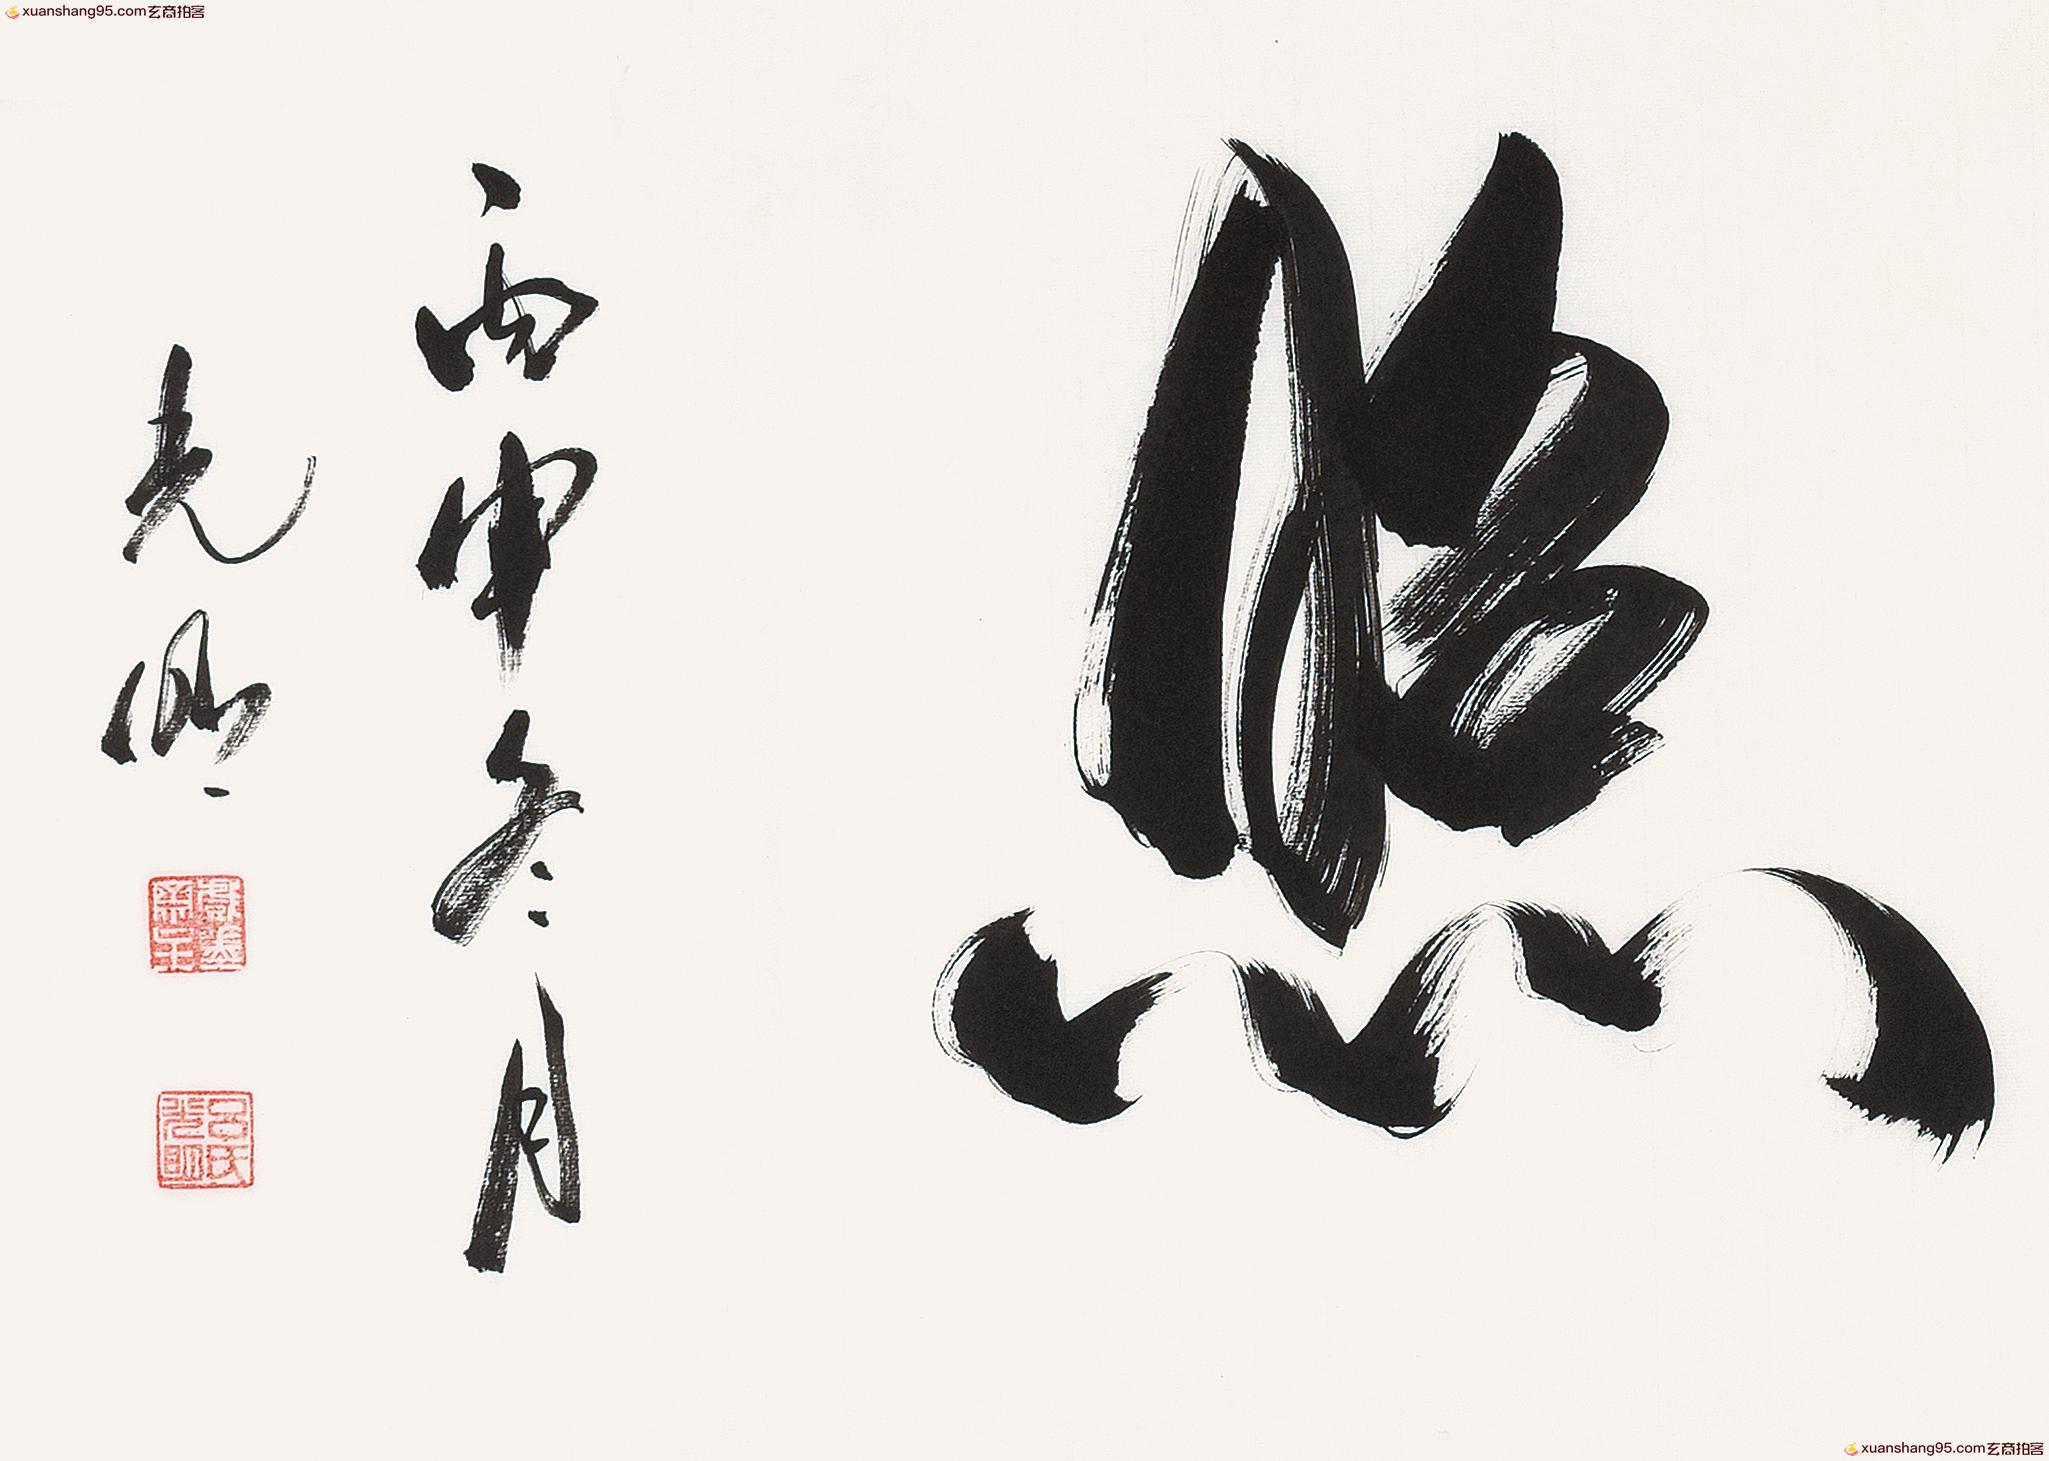 xuanshang95.com玄商拍客
照
丙申冬月
光明
吕氏光明
xuanshang95.com玄商拍客